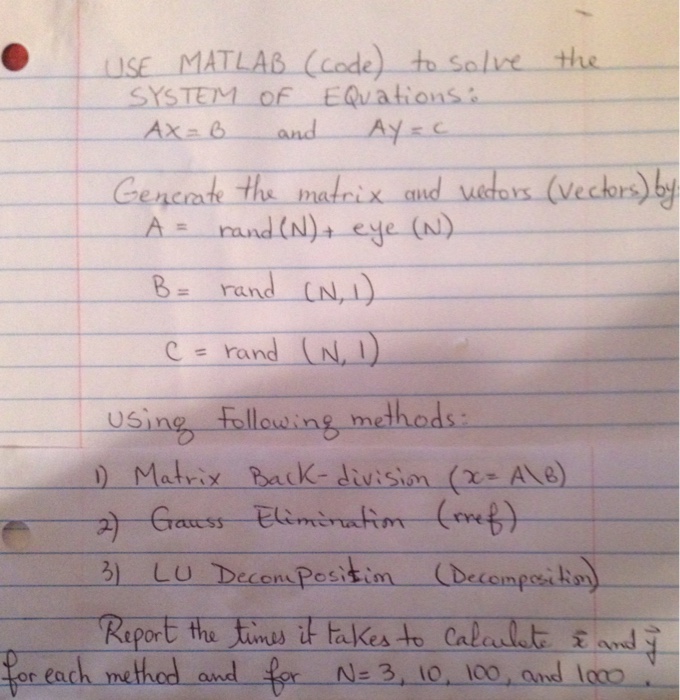 USE MATLAB (code) to solve the
SYSTEM OF EQuations:
AX = B and AY = C
Generate the matrix and vectors (vectors) by
A = rand(N) + eye (N)
B = rand (N, 1)
C = rand (N, 1)
Using following methods:
1) Matrix Back-division (x = A\B)
2) Gauss Elimination (rref)
3) LU Decomposition (Decomposition)
Report the times it takes to Calculate x⃗ and y⃗
for each method and for N= 3, 10, 100, and 1000.